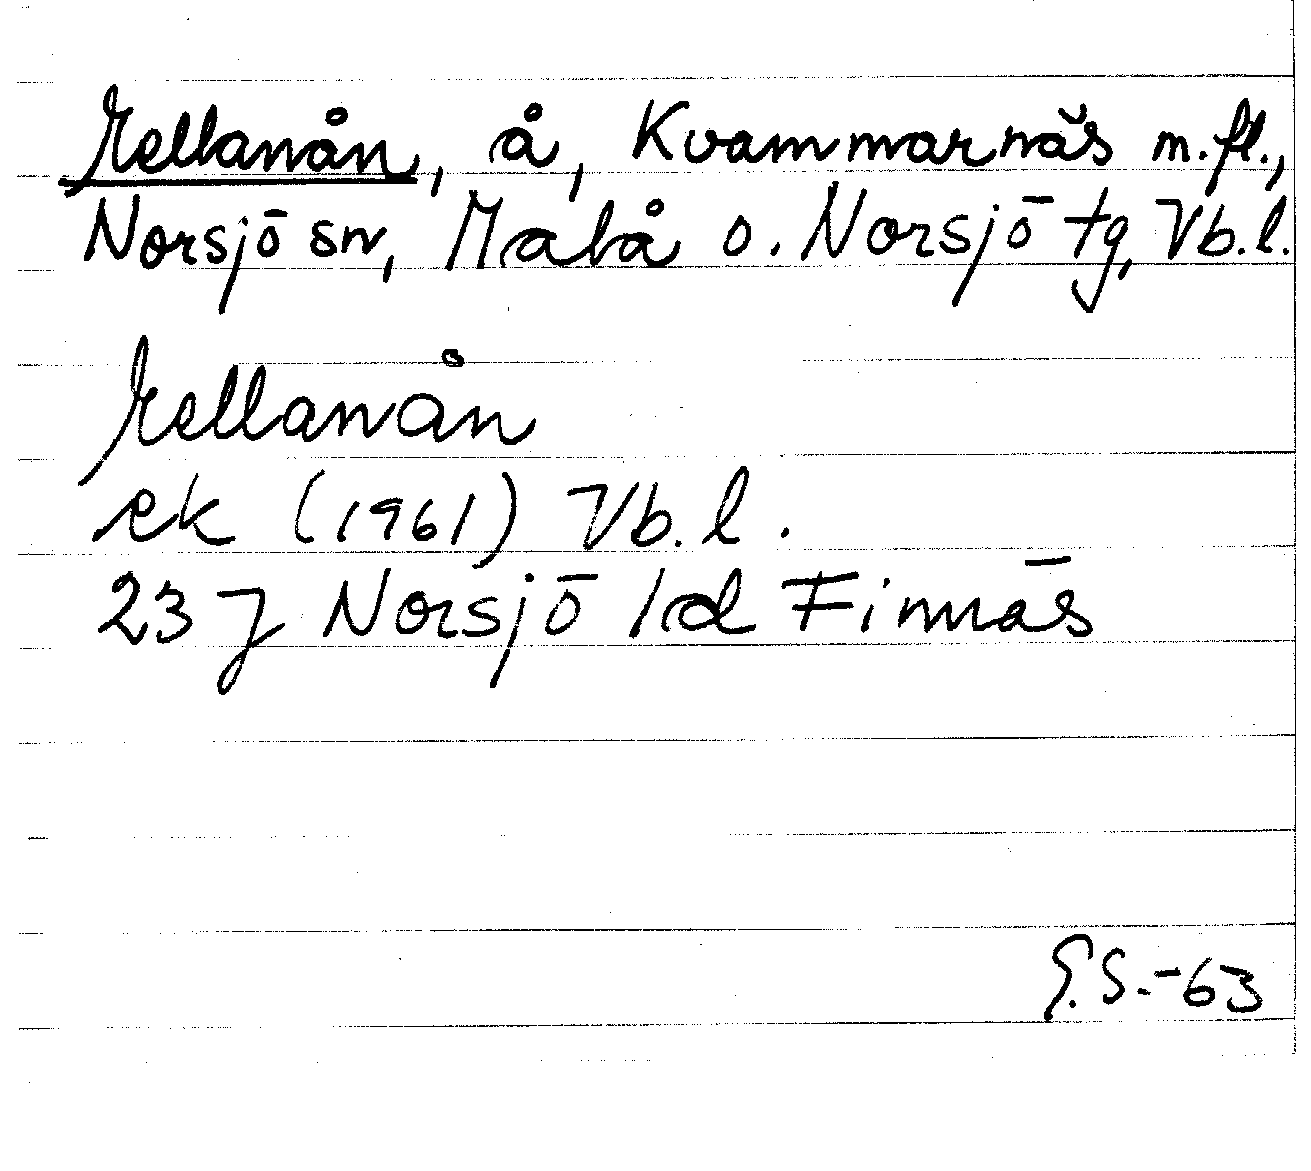 Mellanån, å, Kvammarnäs m.fl.,
Norsjö sn, Malå o. Norsjö tg, Vb.l.
Mellanån
ek (1961) Vb.l.
23 J Norsjö Id Finnäs
G.S.-63